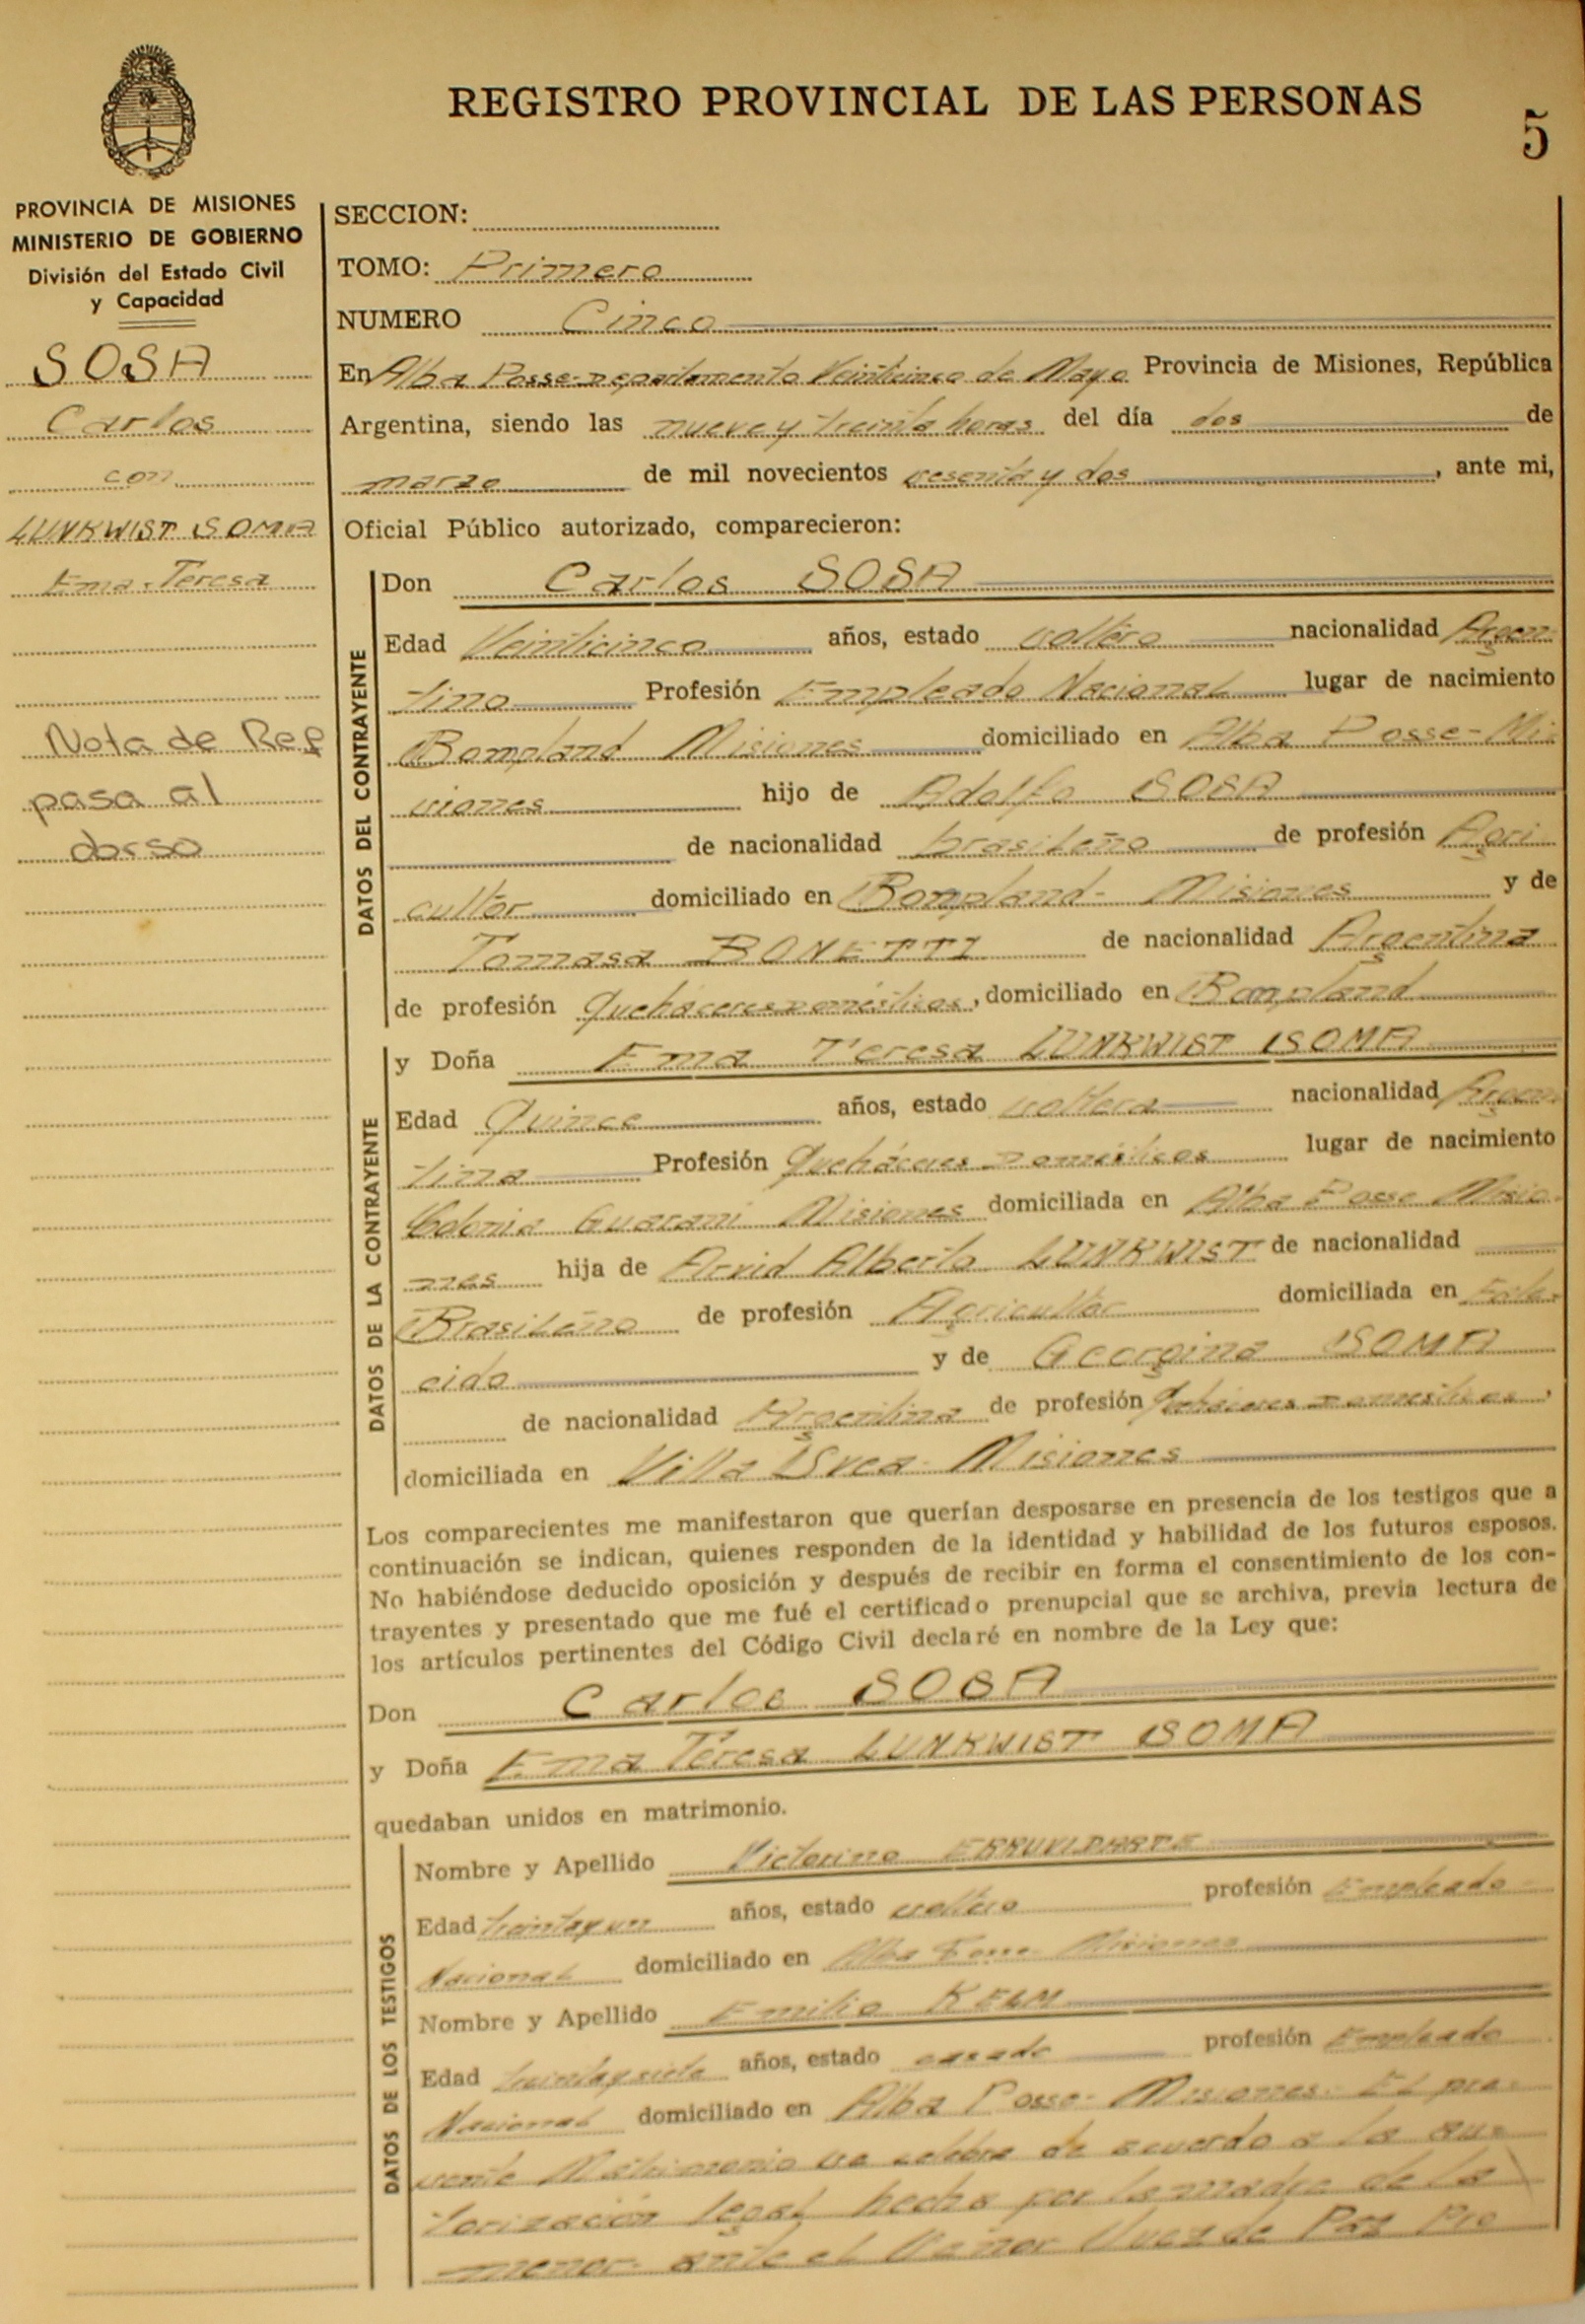 REGISTRO PROVINCIAL DE LAS PERSONAS
5
PROVINCIA DE MISIONES
MINISTERIO DE GOBIERNO
División del Estado Civil
y Capacidad
SOSA
Carlos
con
LUNKWIST SOMA
Ema Teresa
Nota de Ref
pasa al
dorso
SECCION:
TOMO: Primero
NUMERO Cinco
En Alba Posse-Departamento Veinticinco de Mayo Provincia de Misiones, República
Argentina, siendo las nueve y treinta horas del día dos de
marzo de mil novecientos sesenta y dos, ante mi,
Oficial Público autorizado, comparecieron:
DATOS DEL CONTRAYENTE
Don Carlos SOSA
Edad Veinticinco años, estado soltero nacionalidad Argen
tino Profesión Empleado Nacional lugar de nacimiento
Bompland Misiones domiciliado en Alba Posse-Mi
siones hijo de Adolfo SOSA
de nacionalidad brasileño de profesión Agri
cultor domiciliado en Bompland- Misiones y de
Tomasa BONETTI de nacionalidad Argentina
de profesión Quehaceres Domésticos, domiciliado en Bompland
DATOS DE LA CONTRAYENTE
y Doña Ema Teresa LUNKWIST SOMA
Edad Quince años, estado soltera nacionalidad Argen
tina Profesión Quehaceres Domésticos lugar de nacimiento
Colonia Guaraní Misiones domiciliada en Alba Posse Misio
nes hija de Arvid Alberto LUNKWIST de nacionalidad
Brasileño de profesión Agricultor domiciliada en Falle
cido y de Georgina SOMA
de nacionalidad Argentina de profesión Quehaceres Domésticos,
domiciliada en Villa Svea- Misiones
Los comparecientes me manifestaron que querían desposarse en presencia de los testigos que a
continuación se indican, quienes responden de la identidad y habilidad de los futuros esposos.
No habiéndose deducido oposición y después de recibir en forma el consentimiento de los con-
trayentes y presentado que me fué el certificado prenupcial que se archiva, previa lectura de
los artículos pertinentes del Código Civil declaré en nombre de la Ley que:
Don Carlos SOSA
y Doña Ema Teresa LUNKWIST SOMA
quedaban unidos en matrimonio.
DATOS DE LOS TESTIGOS
Nombre y Apellido Victorino
Edad treinta y un años, estado soltero profesión Empleado
Nacional domiciliado en Alba Posse- Misiones
Nombre y Apellido Emilio KELM
Edad treinta y siete años, estado casado profesión Empleado
Nacional domiciliado en Alba Posse- Misiones- El pre-
sente Matrimonio se celebra de acuerdo a la au-
torización legal hecha por la madre de la
menor- ante el Señor Juez de Paz Pro